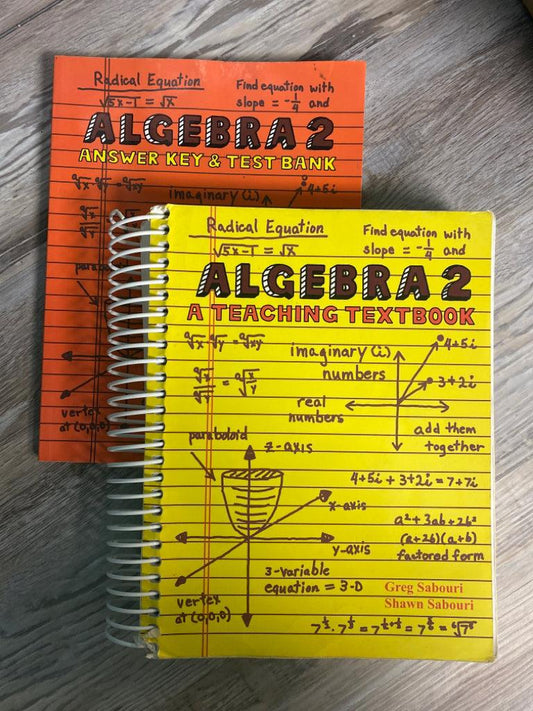 Radical Equation
√5x-1 = √x
Find equation with
slope = -1/4 and
ALGEBRA 2
ANSWER KEY & TEST BANK
ⁿ√x · ⁿ√y = ⁿ√xy
imaginary (i)
4+5i
vertex
at (0,0,0)
Radical Equation
√5x-1 = √x
Find equation with
slope = -1/4 and
ALGEBRA 2
A TEACHING TEXTBOOK
ⁿ√x · ⁿ√y = ⁿ√xy
imaginary (i)
numbers
4+5i
3+2i
real
numbers
add them
together
paraboloid
z-axis
x-axis
y-axis
4+5i + 3+2i = 7+7i
a²+3ab+2b²
(a+2b)(a+b)
factored form
3-variable
equation = 3-D
vertex
at (0,0,0)
Greg Sabouri
Shawn Sabouri